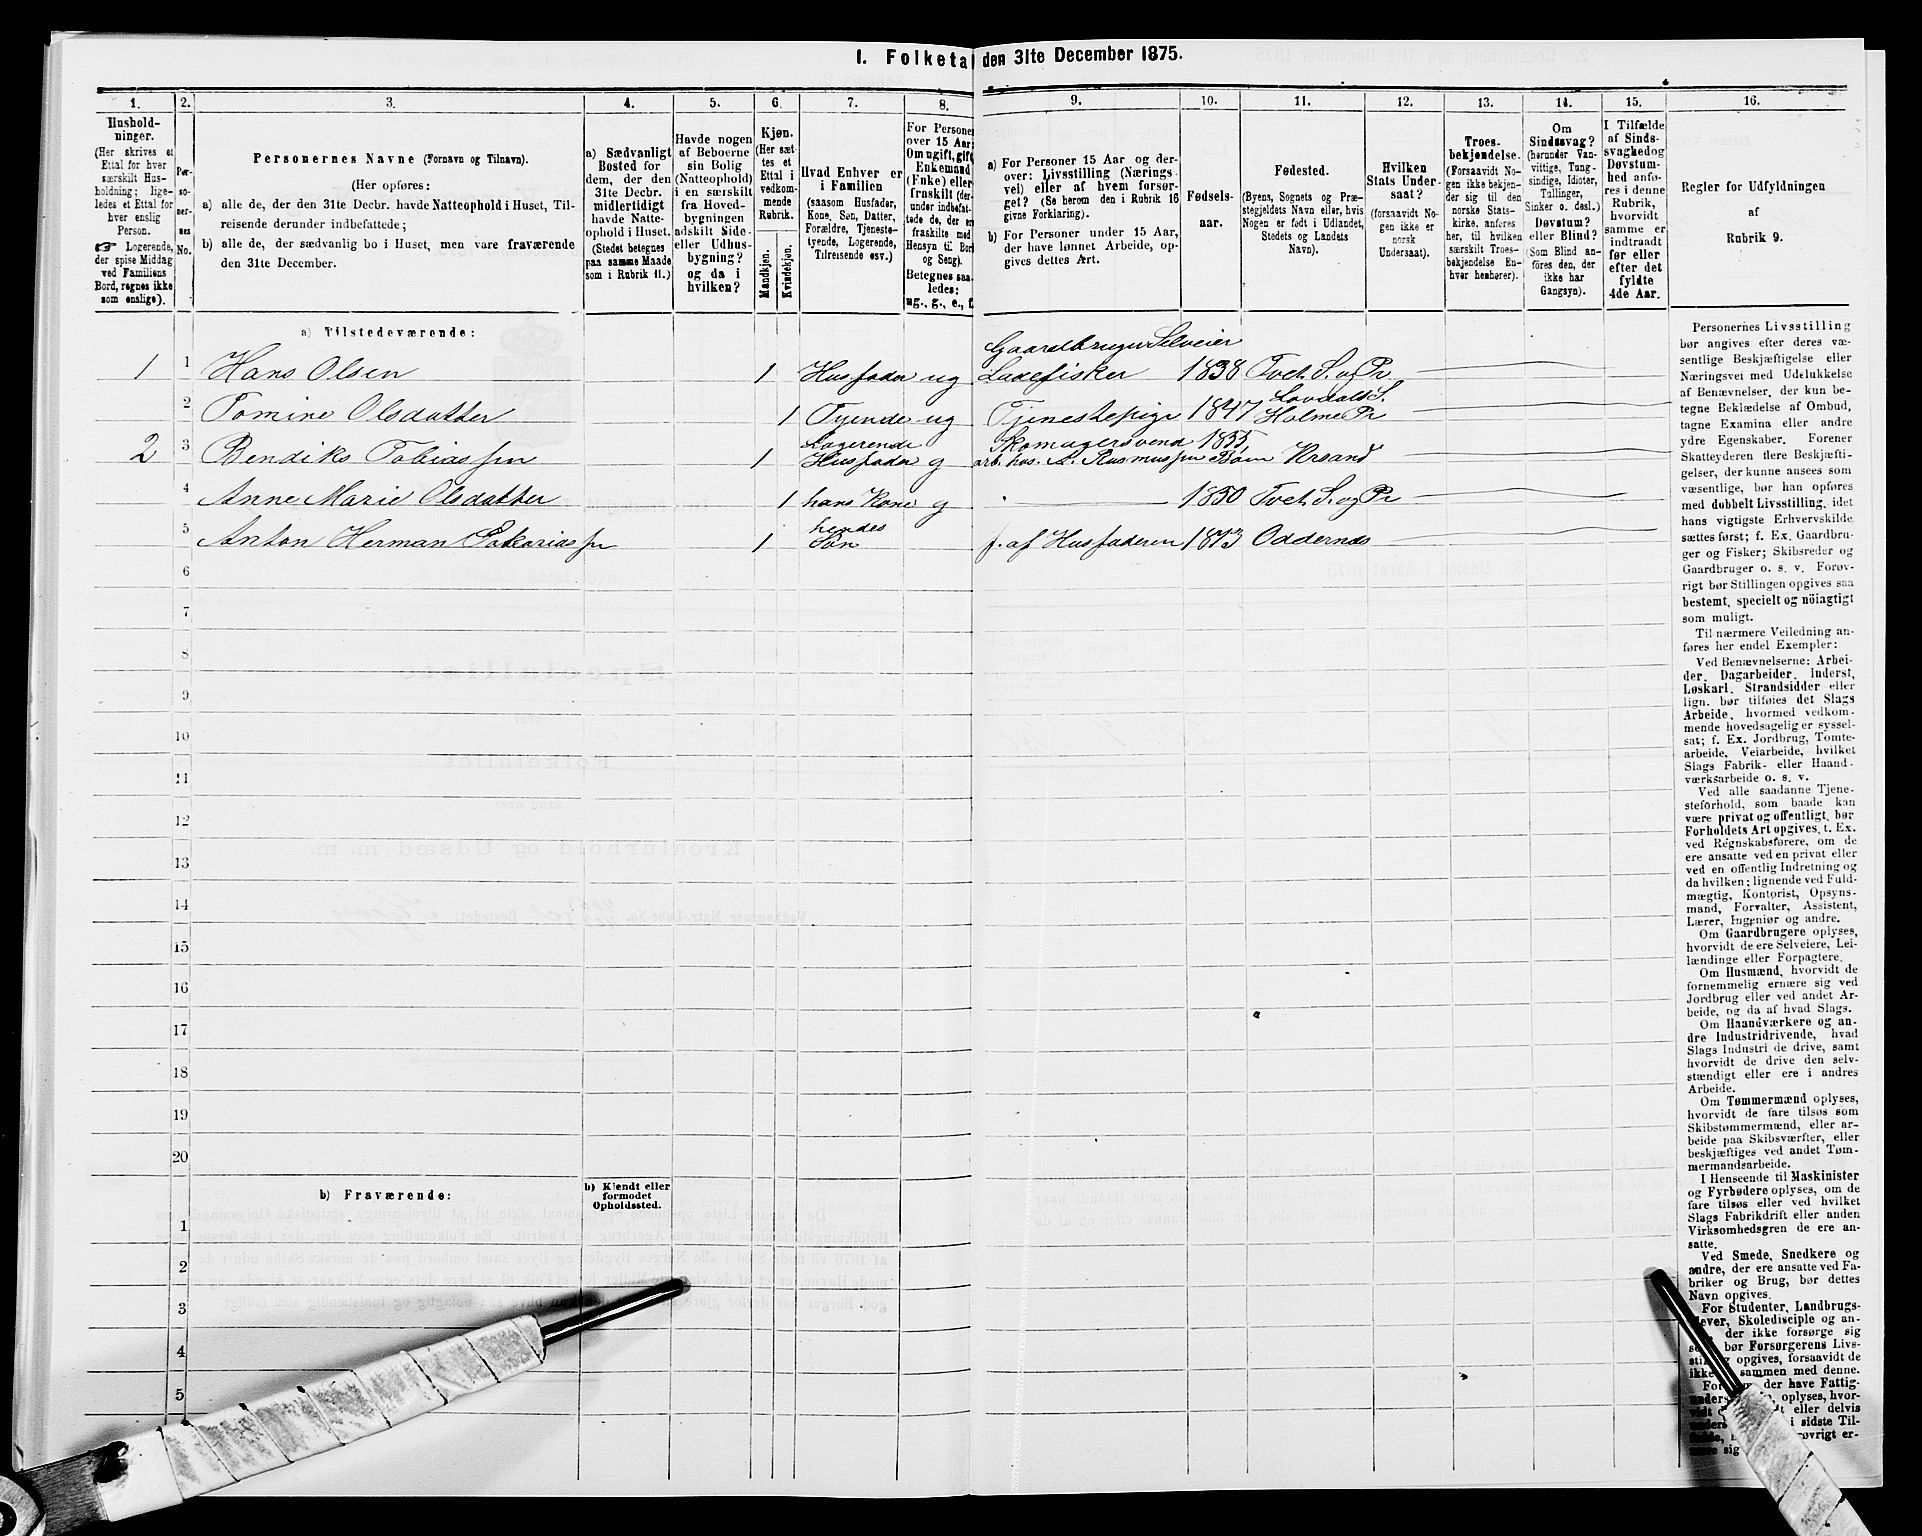 1. Folketal den 31te December 1875.
1. 2. 3. 4. 5. 6. 7. 8. 9. 10. 11. 12. 13. 14. 15. 16.
Hushold-
ninger.
(Her skrives et
Ettal for hver
særskilt Hus-
holdning; lige-
ledes et Ettal for
hver enslig
Person.
☞ Logerende,
der spise Middag
ved Familiens
Bord, regnes ikke
som enslige).
Per-
so-
ner-
nes
No.
Personernes Navne (Fornavn og Tilnavn).
(Her opføres:
a) alle de, der den 31te Decbr. havde Natteophold i Huset, Til-
reisende derunder indbefattede;
b) alle de, der sædvanlig bo i Huset, men vare fraværende
den 31te December.
a) Sædvanligt
Bosted for
dem, der den
31te Decbr.
midlertidigt
havde Natte-
ophold i Huset.
(Stedet betegnes
paa samme Maade
som i Rubrik 11.)
Havde nogen
af Beboerne
sin Bolig
(Natteophold)
i en særskilt
fra Hoved-
bygningen
adskilt Side-
eller Udhus-
bygning?
og da i
hvilken?
Kjøn.
(Her sæt-
tes et
Ettal i
vedkom-
mende
Rubrik.
Mandkjøn.
Kvindekjøn.
Hvad Enhver er
i Familien
(saasom Husfader,
Kone, Søn, Datter,
Forældre, Tjeneste-
tyende, Logerende,
Tilreisende osv.)
For Personer
over 15 Aar:
Om ugift, gift,
Enkemand
(Enke) eller
fraskilt (der-
under indbefat-
tede de, der ere
fraskilte med
Hensyn til Bord
og Seng).
Betegnes saa-
ledes:
ug., g., e., f.
a) For Personer 15 Aar og der-
over: Livsstilling (Nærings-
vei) eller af hvem forsør-
get? (Se herom den i Rubrik 16
givne Forklaring).
b) For Personer under 15 Aar,
der have lønnet Arbeide, op-
gives dettes Art.
Fødsels-
aar.
Fødested.
(Byens, Sognets og Præ-
stegjeldets Navn eller, hvis
Nogen er født i Udlandet,
Stedets og Landets
Navn).
Hvilken
Stats Under-
saat?
(forsaavidt No-
gen ikke er
norsk
Undersaat).
Troes-
bekjendelse.
(Forsaavidt No-
gen ikke bekjen-
der sig til den
norske Stats-
kirke, anføres
her, til hvilken
særskilt Troes-
bekjendelse En-
hver henhører).
Om
Sindssvag?
(herunder Van-
vittige, Tung-
sindige, Idioter,
Tullinger,
Sinker o. desl.)
Døvstum?
eller Blind?
(Som Blind an-
føres den, der
ikke har
Gangsyn).
I Tilfælde
af Sinds-
svaghed og
Døvstum-
hed anfø-
res i denne
Rubrik,
hvorvidt
samme er
indtraadt
før eller
efter det
fyldte
4de Aar.
Regler for Udfyldningen
af
Rubrik 9.
a) Tilstedeværende:
Gaardbruger Selveier
1 1 Hans Olsen 1 Husfader ug Laxefisker 1838 Tvet S. og Pr
Lovdals S.
2 Tomine Olsdatter 1 Tyende ug Tjenestepige 1847 Holme Pr
Logerende Skomagersvend 1855
2 3 Bendiks Tobiassen 1 Husfader g arb. hos. A. Rasmussen Krsand
4 Anne Marie Olsdatter 1 hans Kone g 1850 Tvet S. og Pr
hendes
5 Anton Herman 1 Søn f. af Husfaderen 1873 Oddernæs
6
7
8
9
10
11
12
13
14
15
16
17
18
19
20
b) Fraværende:
b) Kjendt eller
formodet
Opholdssted.
1
2
3
4
5
Personernes Livsstilling
bør angives efter deres væ-
sentlige Beskjæftigelse eller
Næringsvei med Udelukkelse
af Benævnelser, der kun be-
tegne Beklædelse af Ombud,
tagne Examina eller andre
ydre Egenskaber. Forener
Skatteyderen flere Beskjæfti-
gelser, der kunne ansees som
væsentlige, bør han opføres
med dobbelt Livsstilling, idet
hans vigtigste Erhvervskilde
sættes først; f. Ex. Gaardbru-
ger og Fisker; Skibsreder og
Gaardbruger o. s. v. Forøv-
rigt bør Stillingen opgives saa
bestemt, specielt og nöiagtigt
som muligt.
Til nærmere Veiledning an-
føres her endel Exempler:
Ved Benævnelserne: Arbei-
der, Dagarbeider, Inderst,
Løskarl, Strandsidder eller
lign. bør tilføies det Slags
Arbeide, hvormed vedkom-
mende hovedsagelig er syssel-
sat; f. Ex. Jordbrug, Tomte-
arbeide, Veiarbeide, hvilket
Slags Fabrik- eller Haand-
værksarbeide o. s. v.
Ved alle saadanne Tjene-
steforhold, som baade kan
være privat og offentligt, bør
Forholdets Art opgives, t. Ex.
ved Regnskabsførere, om de
ere ansatte ved en privat eller
ved en offentlig Indretning og
da hvilken; lignende ved Fuld-
mægtig, Kontorist, Opsyns-
mand, Forvalter, Assistent,
Lærer, Ingeniør og andre.
Om Gaardbrugere oplyses,
hvorvidt de ere Selveiere, Lei-
lændinge eller Forpagtere.
Om Husmænd, hvorvidt de
fornemmelig ernære sig ved
Jordbrug eller ved andet Ar-
beide, og da af hvad Slags.
Om Haandværkere og an-
dre Industridrivende, hvad
Slags Industri de drive, samt
hvorvidt de drive den selv-
stændigt eller ere i andres
Arbeide.
Om Tømmermænd oplyses,
hvorvidt de fare tilsøs som
Skibstømmermænd, eller ar-
beide paa Skibsværfter, eller
beskjæftiges ved andet Tøm-
mermandsarbeide.
I Henseende til Maskinister
og Fyrbødere oplyses, om de
fare tilsøs eller ved hvilket
Slags Fabrikdrift eller anden
Virksomhedsgren de ere an-
satte.
Ved Smede, Snedkere og
andre, der ere ansatte ved Fa-
briker og Brug, bør dettes
Navn opgives.
For Studenter, Landbrugs-
elever, Skoledisciple og an-
der ikke forsørge sig
bør Forsørgerens Livs-
opgives, forsaavidt de
ikke sammen med denne.
der have Fattig-
oplyses, hvor-
eller delvis
i sidste Til-
øvrigt er-
sig